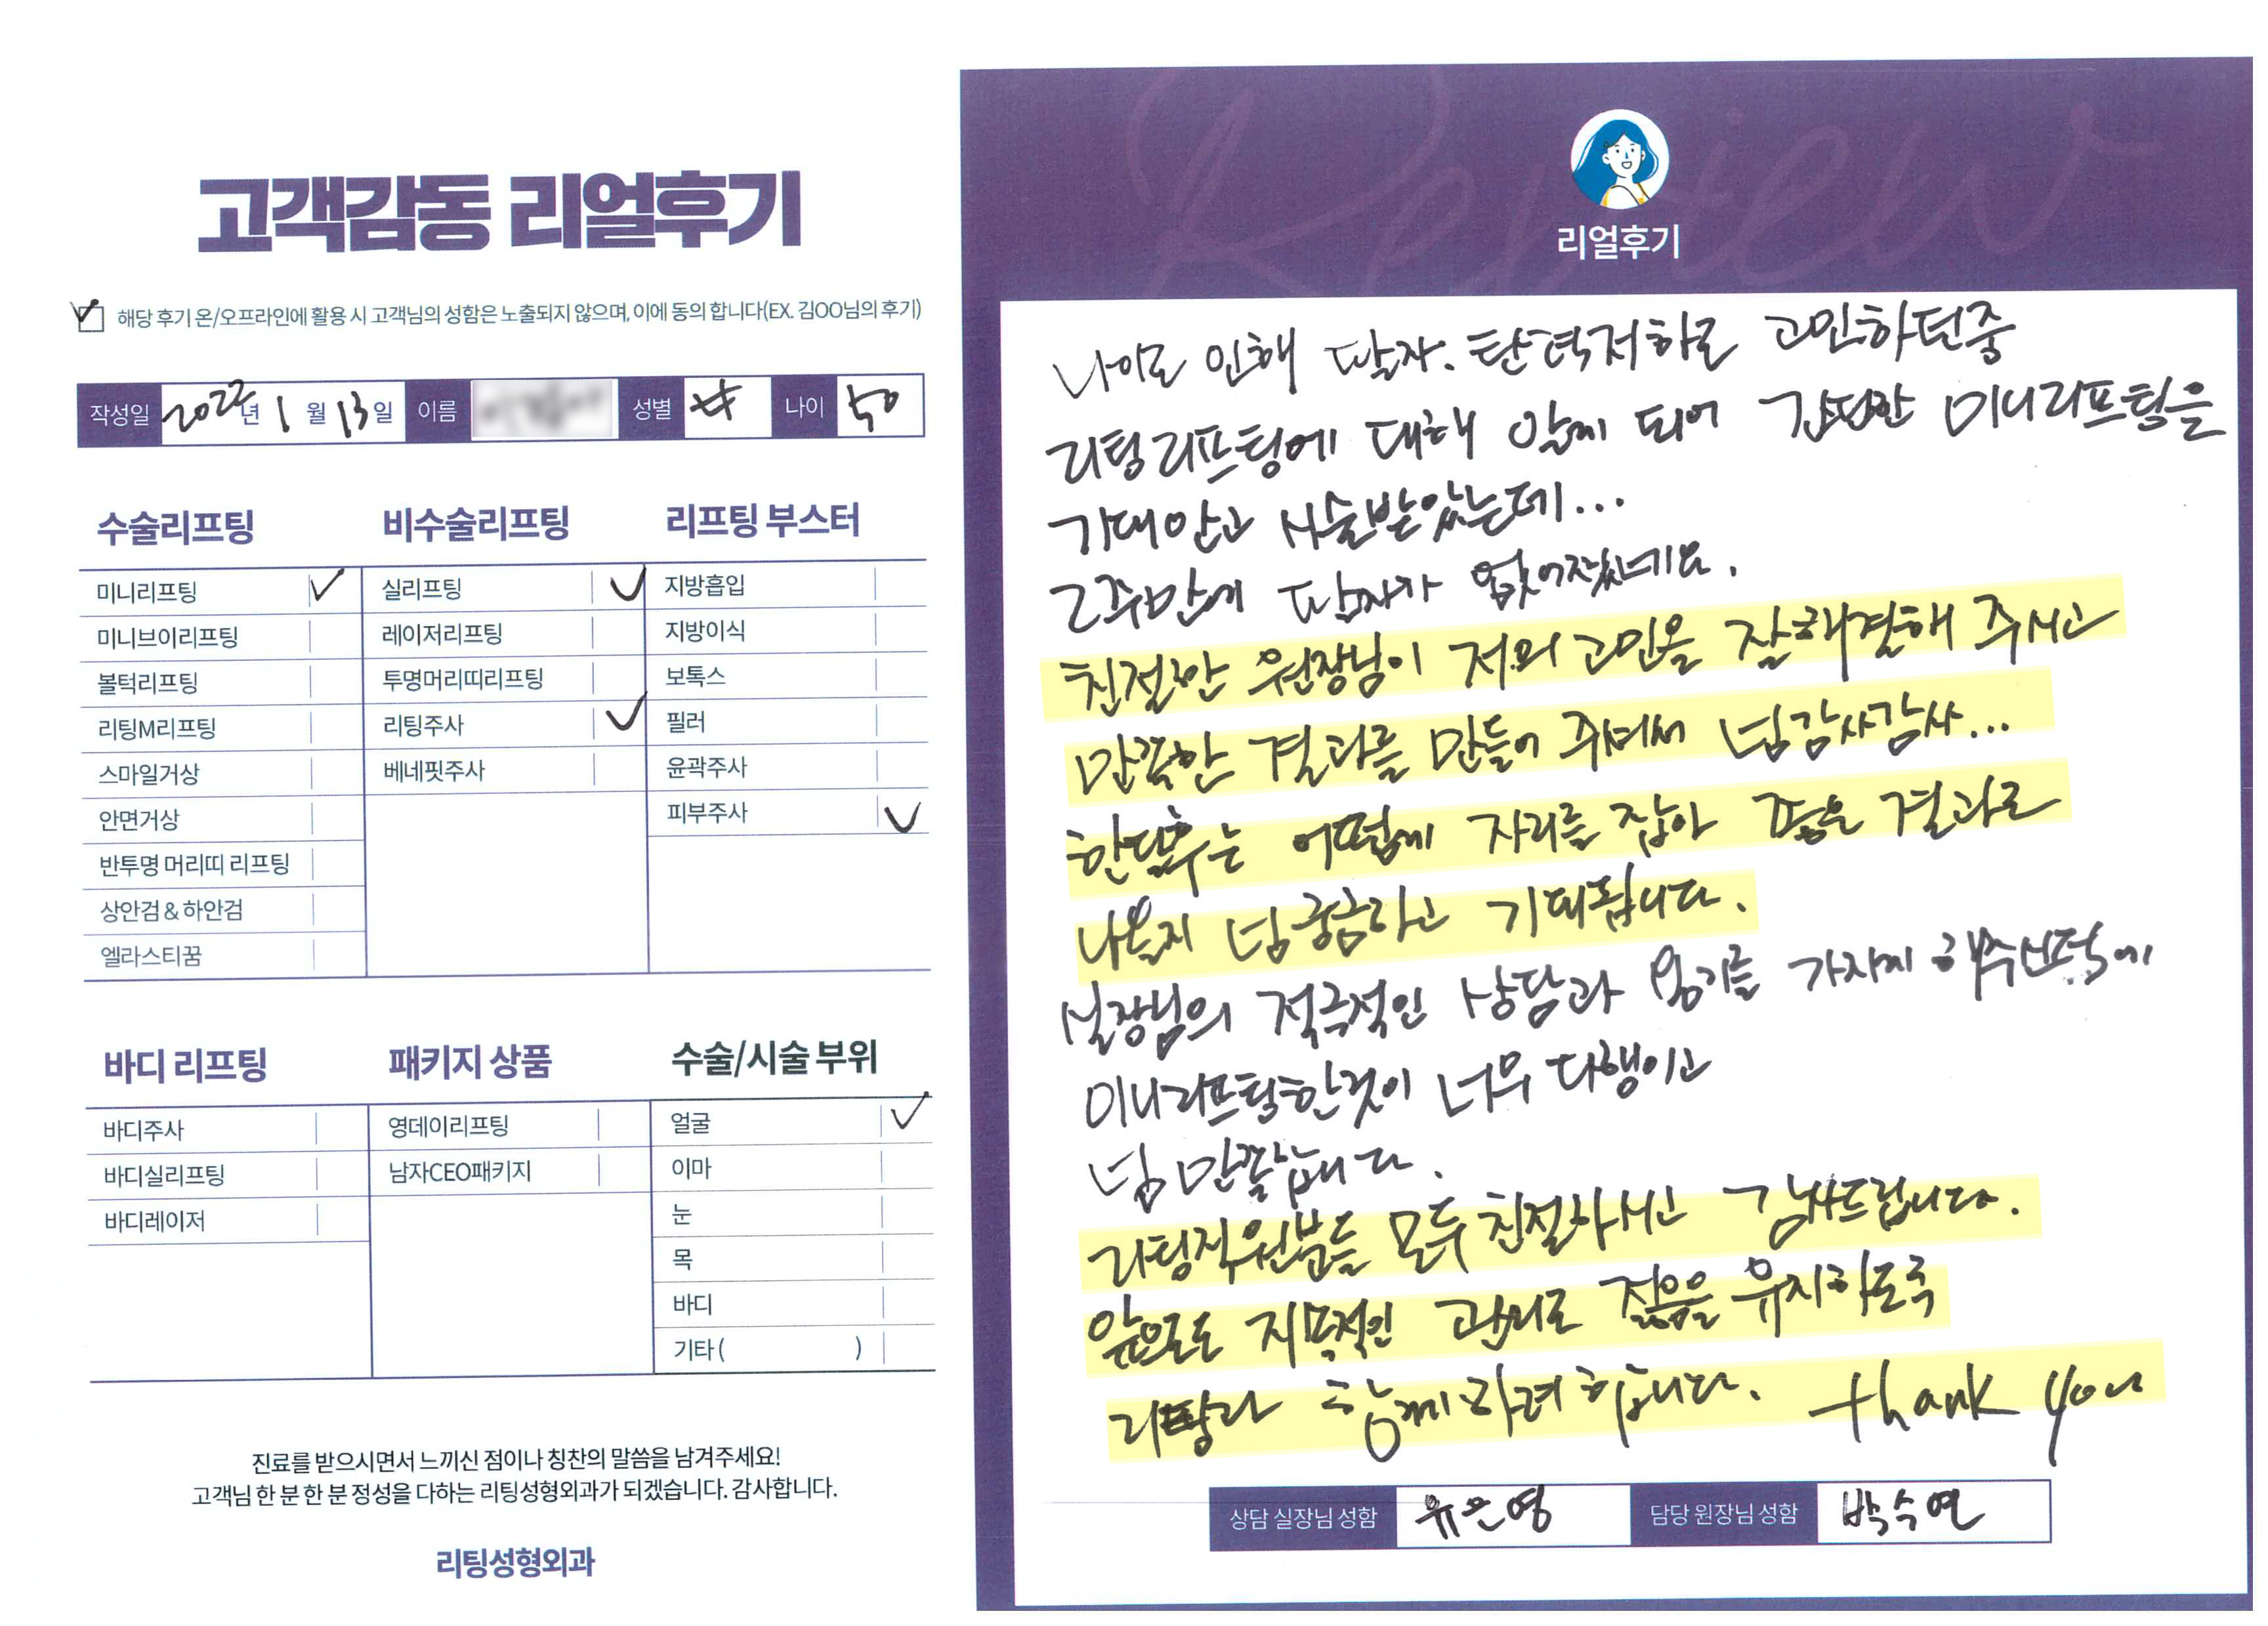 고객감동 리얼후기
해당 후기 온/오프라인에 활용 시 고객님의 성함은 노출되지 않으며, 이에 동의 합니다(EX. 김OO님의 후기)
작성일 2022년 1월 13일 이름 성별 女 나이 50
수술리프팅
미니리프팅
미니브이리프팅
볼턱리프팅
리팅M리프팅
스마일거상
안면거상
반투명 머리띠 리프팅
상안검 & 하안검
엘라스티꿈
비수술리프팅
실리프팅
레이저리프팅
투명머리띠리프팅
리팅주사
베네핏주사
리프팅 부스터
지방흡입
지방이식
보톡스
필러
윤곽주사
피부주사
바디 리프팅
바디주사
바디실리프팅
바디레이저
패키지 상품
영데이리프팅
남자CEO패키지
수술/시술 부위
얼굴
이마
눈
목
바디
기타 ( )
진료를 받으시면서 느끼신 점이나 칭찬의 말씀을 남겨주세요!
고객님 한 분 한 분 정성을 다하는 리팅성형외과가 되겠습니다. 감사합니다.
리팅성형외과
Review
리얼후기
나이로 인해 팔자. 탄력저하로 고민하던중
리팅리프팅에 대해 알게 되어 간단한 미니리프팅을
기대안고 시술받았는데...
2주만에 팔자가 없어졌네요.
친절한 원장님이 저의 고민을 잘해결해 주시고
만족한 결과를 만들어 주셔서 넘감사감사...
한달후는 어떻게 자리를 잡아 좋은 결과로
나올지 넘 궁금하고 기대됩니다.
실장님의 적극적인 상담과 용기를 가지게 해주신덕에
미니리프팅한것이 너무 다행이고
넘 만족합니다.
리팅직원분들 모두 친절하시고 감사드립니다.
앞으로도 지속적인 관리로 젊음을 유지하도록
리팅과 함께하려 합니다. thank you
상담 실장님 성함 유은영 담당 원장님 성함 박수연